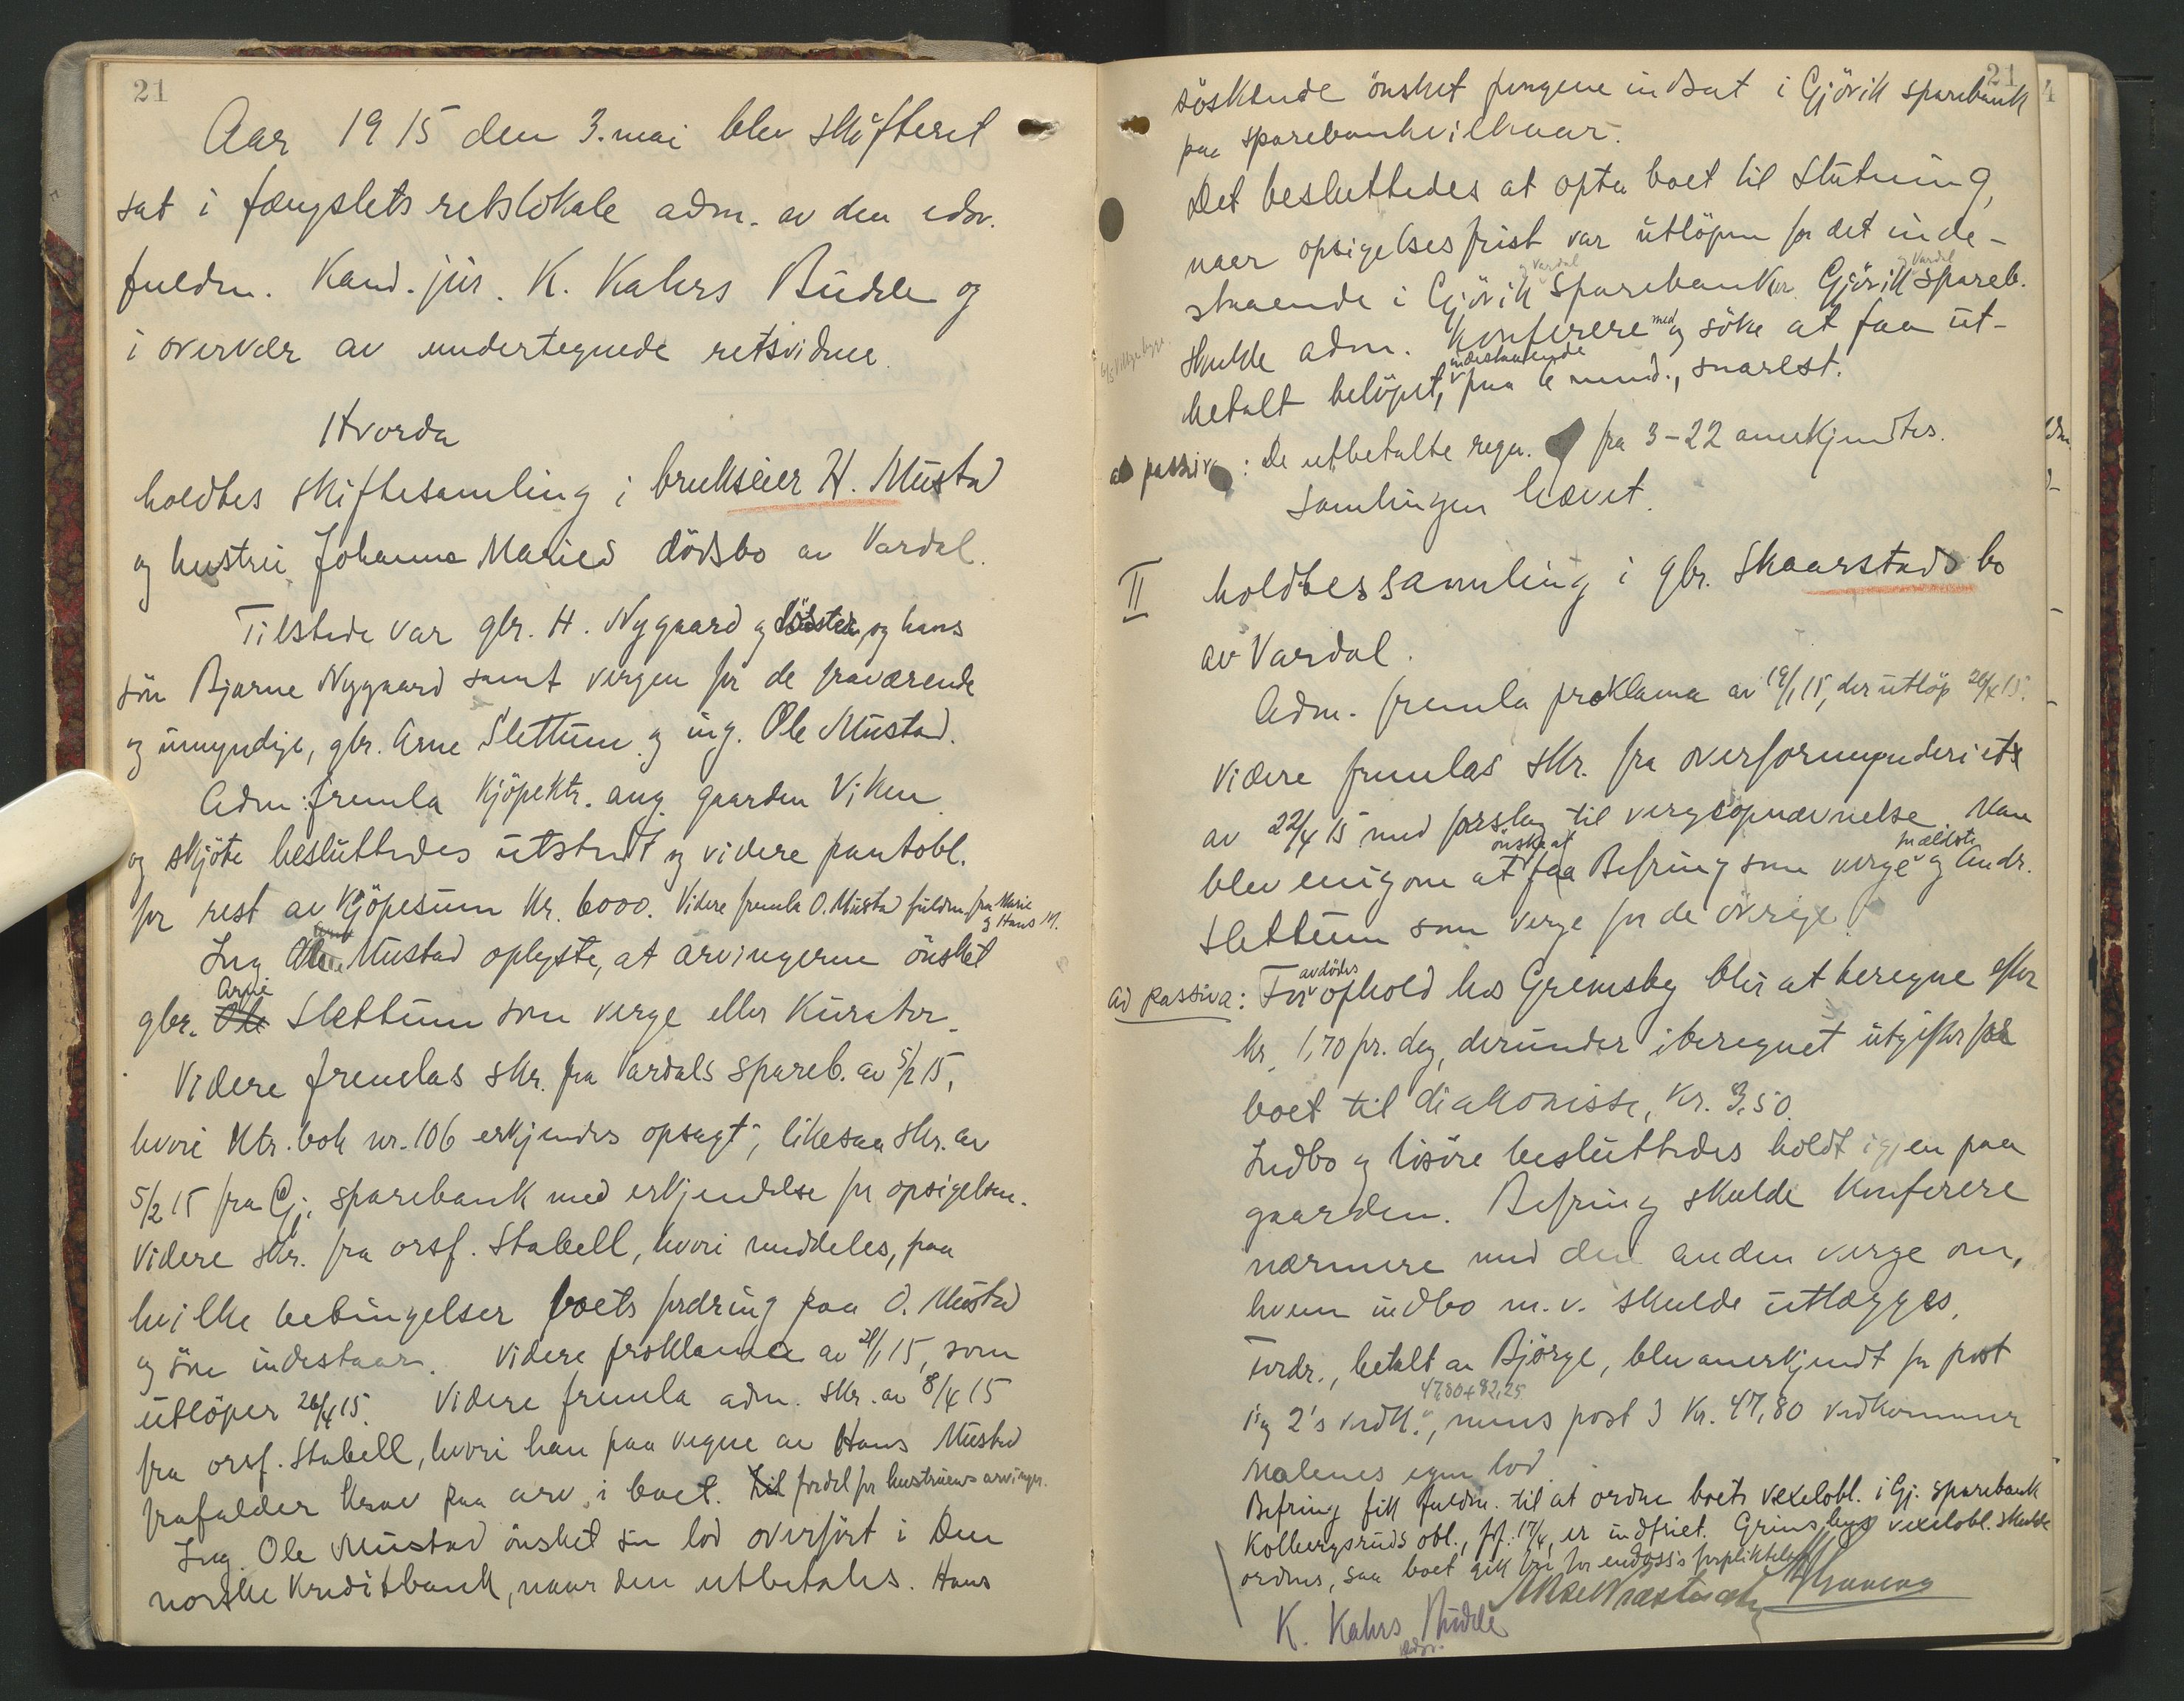 21
Aar 1915 den 3. mai blev skifteret
sat i fængslets retslokale adm. av den edsv.
fuldm. Kand. jur. K. Kahrs Budde og
i overvær av undertegnede retsvidner.
Hvorda
holdtes skiftesamling i brukseier H. Mustad
og hustru Johanne Maries dödsbo av Vardal.
Tilstede var gbr. H. Nygaard og hans
sön Bjarne Nygaard samt vergen for de fraværende
og umyndige, gbr. Arne Slettum og ing. Ole Mustad.
Adm. fremla kjöpektr. ang. gaarden Viken
og skjöte besluttedes utstedt og videre pantobl.
for rest av kjöpesum kr. 6000. Videre fremla O. Mustad fuldm. fra Marie
og Hans M.
Ing. Mustad oplyste, at arvingerne önsket
Arne
gbr. Ole Slettum som verge eller kurator.
Videre fremlas skr. fra Vardals spareb. av 5/2 15,
hvori ktr. bok nr. 106 erkjendes opsagt, likesaa skr. av
5/2 15 fra Gj. sparebank med erkjendelse for opsigelsen.
Videre skr. fra orsf. Stabell, hvori meddeles, paa
hvilke betingelser boets fordring paa O. Mustad
og sön indestaar. Videre proklama av 21/1 15, som
utlöper 26/4 15. Videre fremla adm. skr. av 8/4 15
fra orsf. Stabell, hvori han paa vegne av Hans Mustad
frafalder krav paa arv i boet. til fordel for hustruens arvinger.
Ing. Ole Mustad önsket sin lod overfört i Den
norske Kreditbank, naar den utbetales. Hans
21
söskende önsket pengene indsat i Gjövik sparebank
paa sparebankvilkaar.
Det besluttedes at opta boet til slutning,
naar opsigelsesfrist var utlöpen for det inde-
og Vardal
og Vardal
staaende i Gjövik Sparebanker. Gjövik spareb.
skulde adm. konferere med og söke at faa ut-
indestaaende
betalt belöpet, paa 6 mnd., snarest.
ad passiva: De utbetalte regn. fra 3-22 anerkjendtes.
Samlingen hævet.
II holdtes samling i gbr. Skaarstads bo
av Vardal.
Adm. fremla proklama av 19/1 15, der utlöp 26/4 15.
Videre fremlas skr. fra overformynderiet
av 22/4 15 med forslag til vergeopnævnelse. Man
önske at
mældste
blev enig om at faa Befring som verge og Andr.
Slettum som verge for de övrige.
avdödes
ad passiva: For ophold hos Gremsby blir at beregne efter
kr. 1,70 pr. dag, derunder iberegnet utgifter for
boet til diakonisse, kr. 3,50.
Indbo og lösöre besluttedes holdt igjen paa
gaarden. Befring skulde konferere
nærmere med den anden verge om,
hvem indbo m.v. skulde utlægges.
Fordr., betalt av Björge, blev anerkjendt for post
47,80 + 82,25
1 og 2's vedk., mens post 3 kr. 47,80 vedkommer
Malenes egen lod.
Befring fik fuldm. til at ordne boets vexelobl. i Gj. sparebank
Kolbergsruds obl., jfr. 17/4, er indfriet. Grimsbys vexelobl. skulde
ordnes, saa boet gik fri for endoss's forpliktelser.
K. Kahrs Budde
edsv.